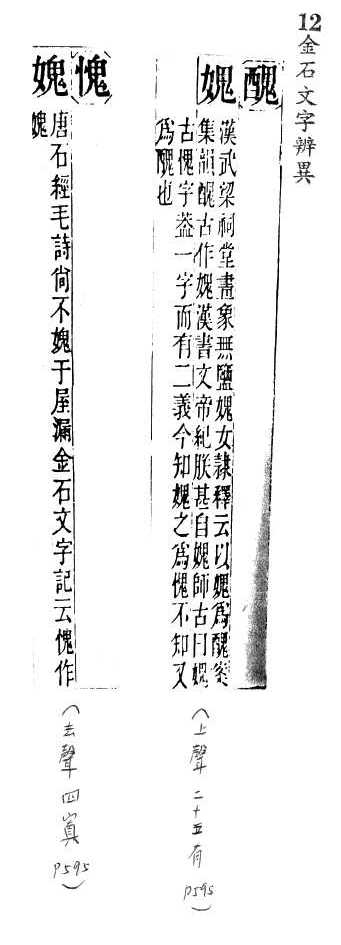 12
金石文字辨異
醜
媿
漢武梁祠堂畫象無鹽媿女隸釋云以媿爲醜案
集韻醜古作媿漢書文帝紀朕甚自媿師古曰媿
古愧字葢一字而有二義今知媿之爲愧不知又
爲醜也
(上聲二十五有 P595)
愧
媿
唐石經毛詩尙不媿于屋漏金石文字記云愧作
媿
(去聲四寘 P595)